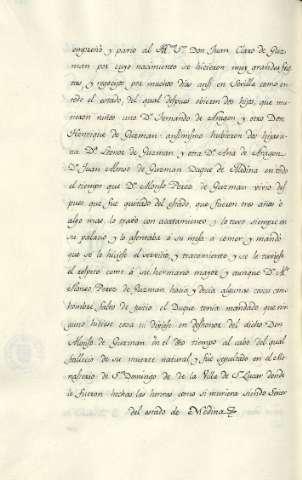 empreñó y parió al Mº Vº Don Juan Claro de Guz-
man por cuyo nacimiento se hicieron muy grandes fies-
tas y regocijos por muchos dias ansi en Sevilla como en
todo el estado, del qual despues obieron dos hijos, que mu-
rieron niños uno Dⁿ Fernando de Aragon y otro Don
Henrique de Guzman: ansimismo hubieron dos hijas a
na Dª Leonor de Guzman y otra Dª Ana de Aragon
Dⁿ Juan Alonso de Guzman Duque de Medina en todo
el tiempo que Dⁿ Alonso Perez de Guzman vivio des
pues que fue quitado del estado, que fueron tres años o
algo mas lo trató con acatamiento y lo tuvo siempre en
su palacio y lo asentaba á su mesa á comer, y mandó
que se le hiciese el servicio, y tratamiento y se le tuviese
el respeto como á su hermano mayor y aunque Dⁿ Aº
Alonso Perez de Guzman hacia y decia algunas cosas como
hombre falto de juicio el Duque tenia mandado que nin
guno hiciese cosa ni dijese en deshonor del dicho Don
Alonso de Guzman en el dho tiempo al cabo del qual
fallecio de su muerte natural y fue sepultado en el Mo
nasterio de Sto Domingo de de la Villa de Sn Lucar donde
le fueron hechas las honras como si muriera siendo Señor
del estado de Medina